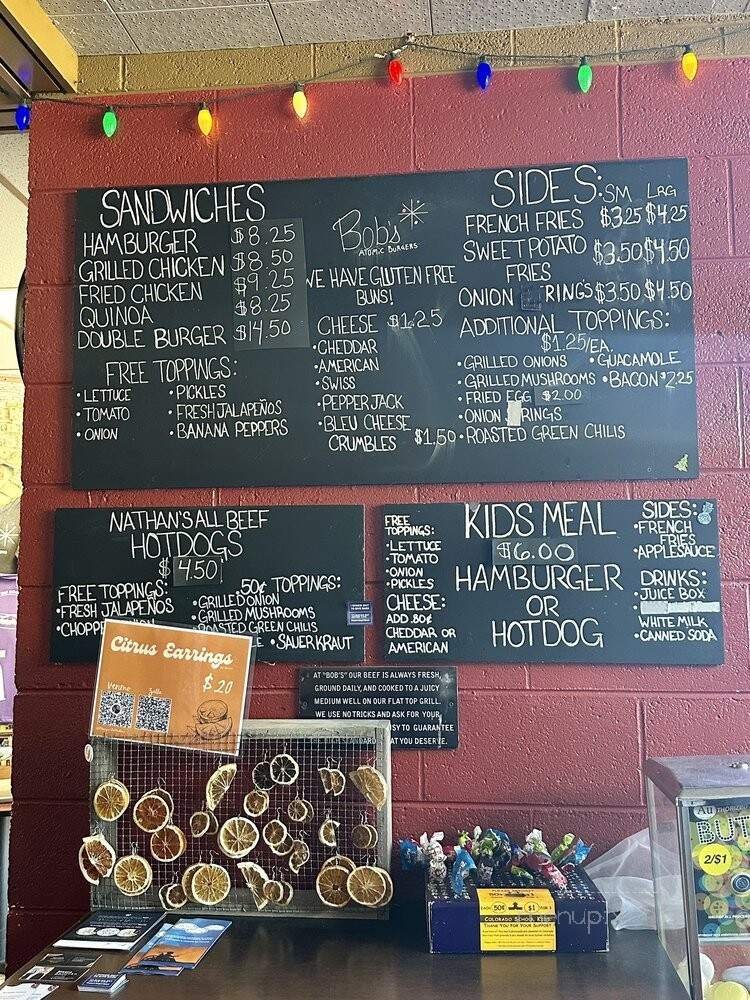 SANDWICHES
HAMBURGER $8.25
GRILLED CHICKEN $8.50
FRIED CHICKEN $9.25
QUINOA $8.25
DOUBLE BURGER $14.50
FREE TOPPINGS:
• LETTUCE
• TOMATO
• ONION
• PICKLES
• FRESH JALAPEÑOS
• BANANA PEPPERS
Bob's
ATOMIC BURGERS
WE HAVE GLUTEN FREE
BUNS!
CHEESE $1.25
• CHEDDAR
• AMERICAN
• SWISS
• PEPPER JACK
• BLEU CHEESE
CRUMBLES $1.50
SIDES: SM LRG
FRENCH FRIES $3.25 $4.25
SWEET POTATO $3.50 $4.50
FRIES
ONION RINGS $3.50 $4.50
ADDITIONAL TOPPINGS:
$1.25/EA.
• GRILLED ONIONS
• GRILLED MUSHROOMS
• FRIED EGG $2.00
• ONION RINGS
• ROASTED GREEN CHILIS
• GUACAMOLE
• BACON $2.25
NATHAN'S ALL BEEF
HOTDOGS
$4.50
FREE TOPPINGS:
• FRESH JALAPEÑOS
50¢ TOPPINGS:
• GRILLED ONION
• GRILLED MUSHROOMS
ROASTED GREEN CHILIS
• SAUERKRAUT
FREE
TOPPINGS:
• LETTUCE
• TOMATO
• ONION
• PICKLES
CHEESE:
ADD .80¢
CHEDDAR OR
AMERICAN
KIDS MEAL
$6.00
HAMBURGER
OR
HOTDOG
SIDES:
• FRENCH
FRIES
• APPLESAUCE
DRINKS:
• JUICE BOX
WHITE MILK
• CANNED SODA
Citrus Earrings
$20
Venmo
AT "BOB'S" OUR BEEF IS ALWAYS FRESH,
GROUND DAILY, AND COOKED TO A JUICY
MEDIUM WELL ON OUR FLAT TOP GRILL.
WE USE NO TRICKS AND ASK FOR YOUR
TO GUARANTEE
YOU DESERVE.
50¢ $1
COLORADO SCHOOL
THANK YOU FOR YOUR SUPPORT
2/$1